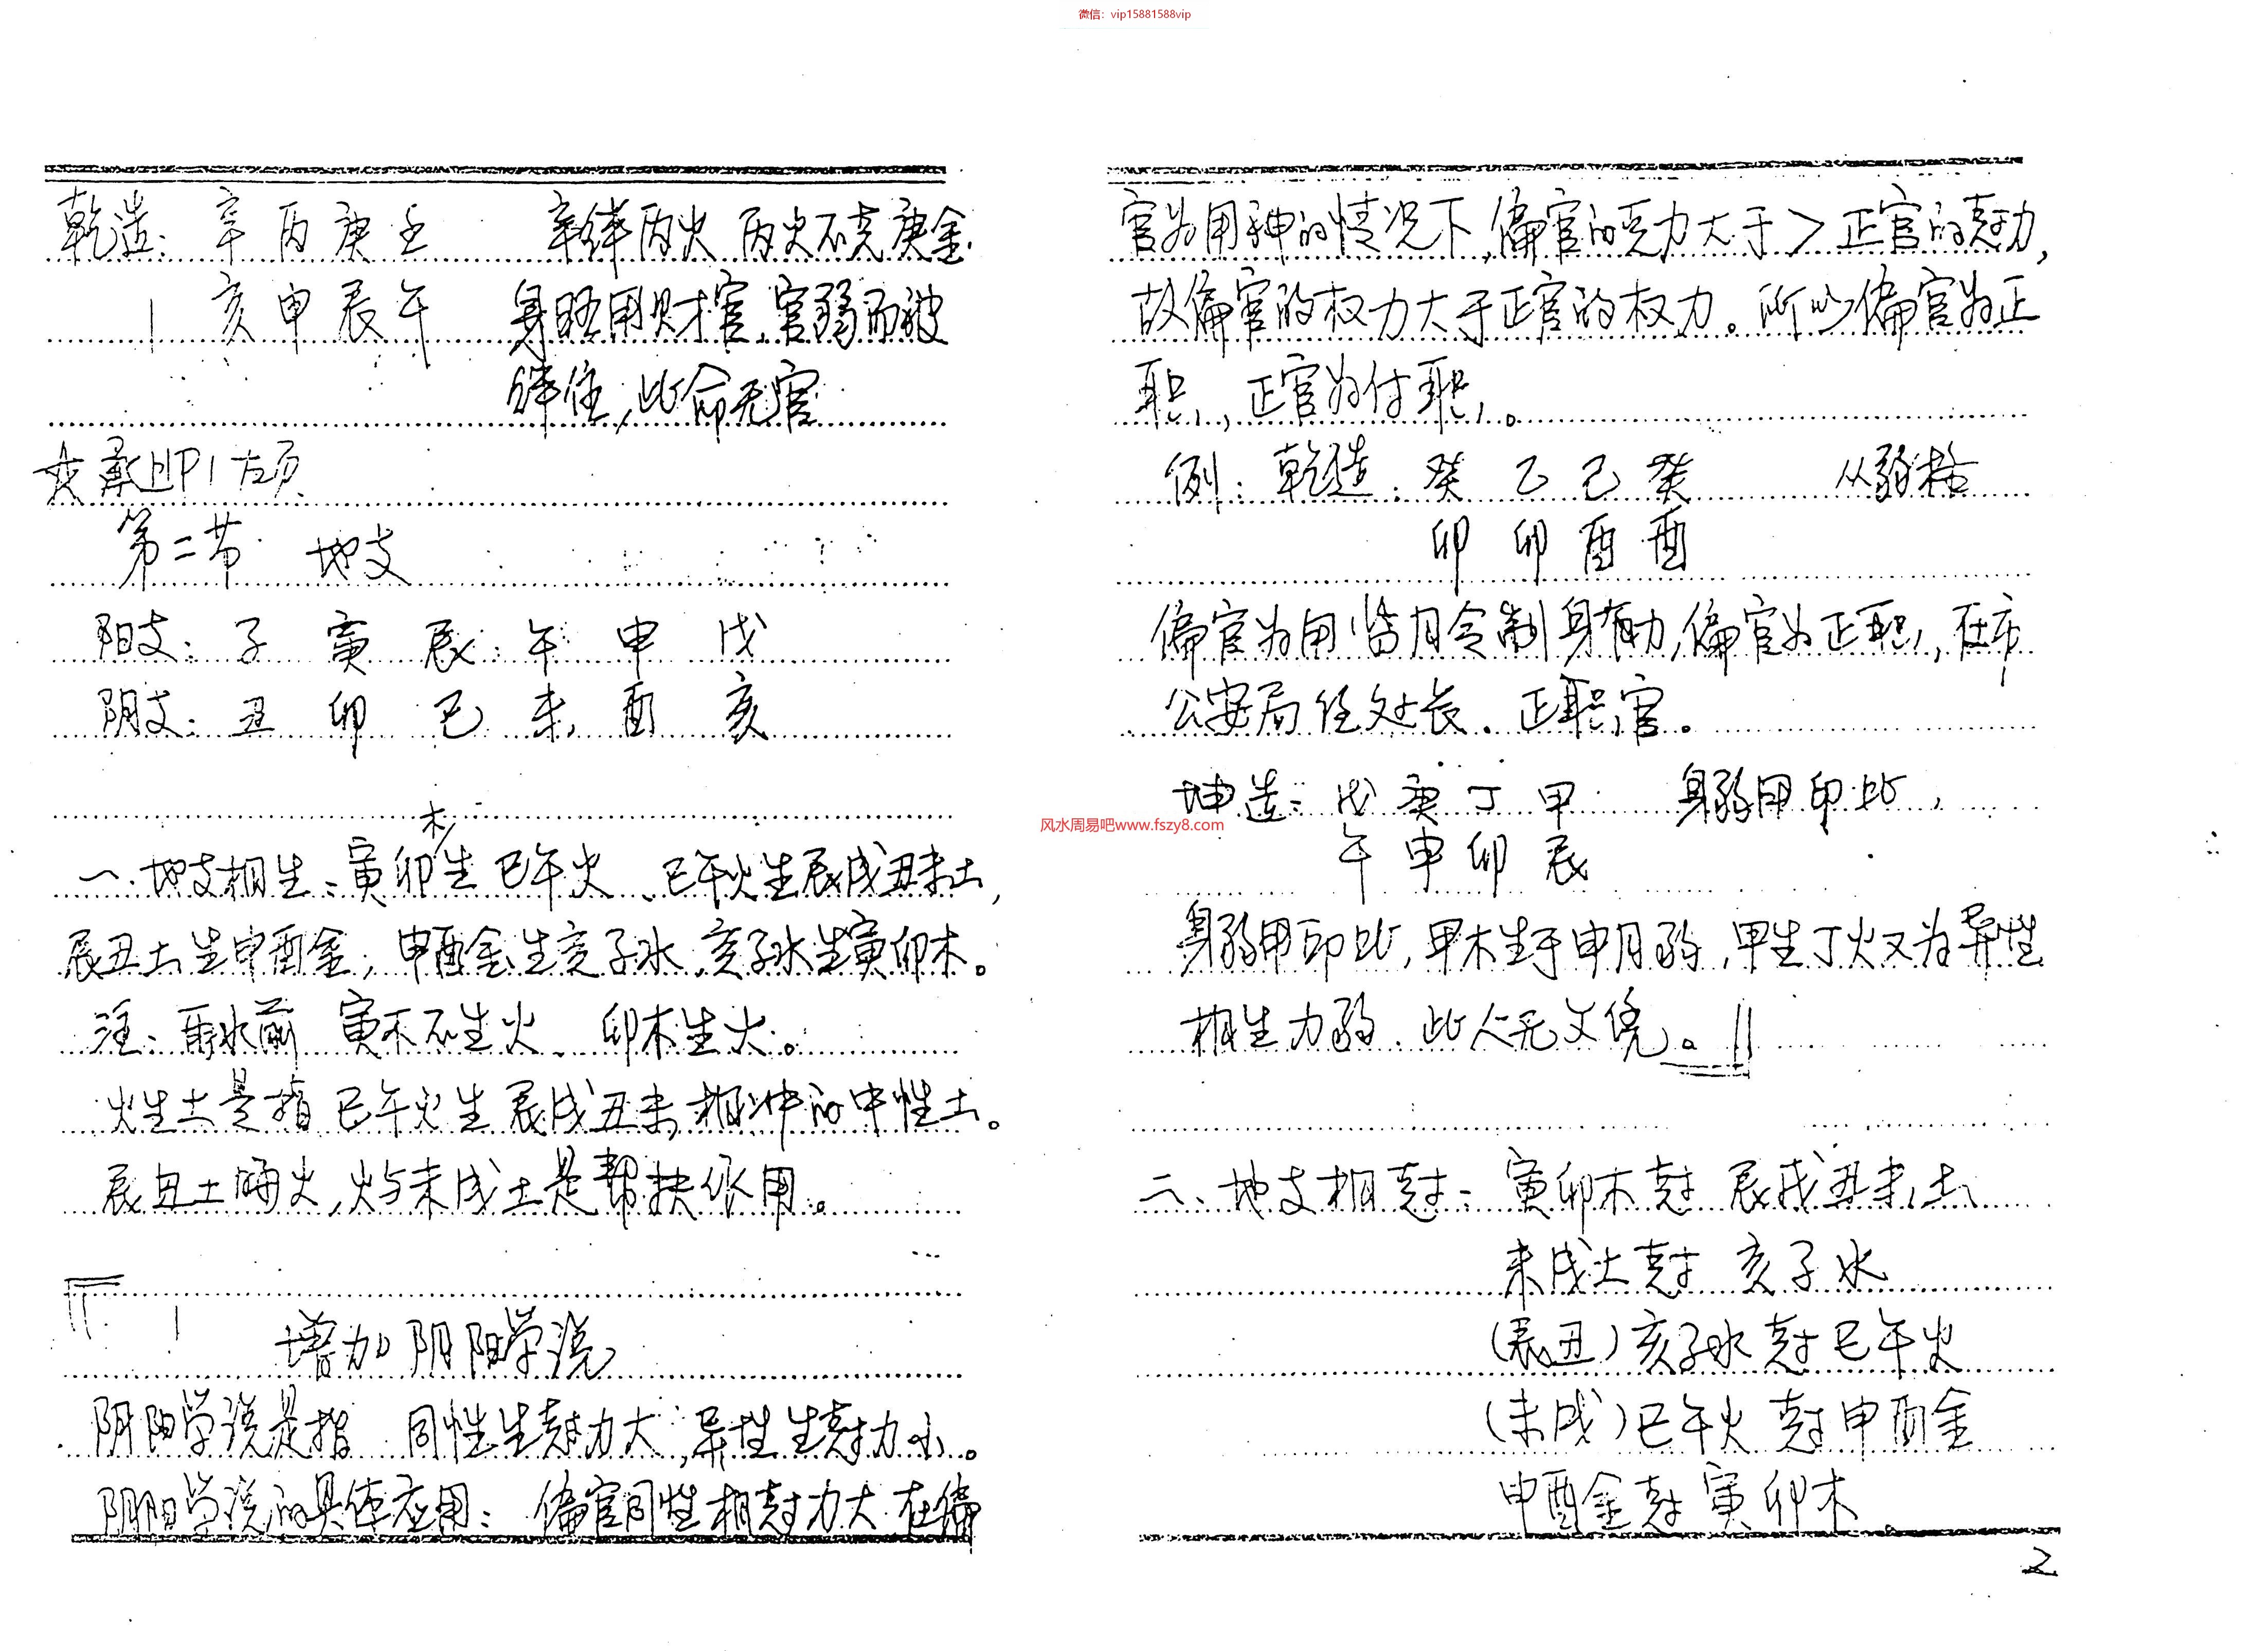 微信：vip15881588vip
乾造：辛 丙 庚 壬 辛绊丙火 丙火不克庚金
亥 申 辰 午 身旺用财官，官弱而被
绊住，此命无官
承上P1左页
第二节 地支
阳支：子 寅 辰 午 申 戌
阴支：丑 卯 巳 未 酉 亥
木
一、地支相生：寅卯生巳午火、巳午火生辰戌丑未土，
辰丑土生申酉金，申酉金生亥子水，亥子水生寅卯木。
注：雨水前 寅木不生火、卯木生火。
火生土是指巳午火生辰戌丑未相冲的中性土。
辰丑土晦火，火与未戌土是帮扶作用。
增加阴阳学说
阴阳学说是指 同性生尅力大，异性生尅力小。
阴阳学说的具体应用：偏官同性相尅力大 在偏
官为用神的情况下，偏官的克力大于＞正官的尅力，
故偏官的权力大于正官的权力。所以偏官为正
职，正官为付职。
例：乾造：癸 乙 己 癸 从弱格
卯 卯 酉 酉
偏官为用 当月令制身有力，偏官为正职，在市
公安局任处长．正职官。
坤造：戊 庚 丁 甲 身弱用印比，
午 申 卯 辰
风水周易吧www.fszy8.com
身弱用印比，甲木生于申月弱，甲生丁火又为异性
相生力弱．此人无文凭。
二、地支相尅：寅卯木尅辰戌丑未土
未戌土尅 亥子水
(辰丑)亥子水尅巳午火
(未戌)巳午火尅申酉金
申酉金尅寅卯木
2